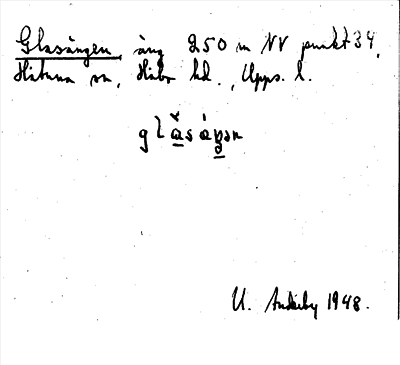 Glasängen, äng 250 m NV punkt 34,
Håtuna sn, Håbo hd., Upps. l.
glàsáŋən
U. 1948.